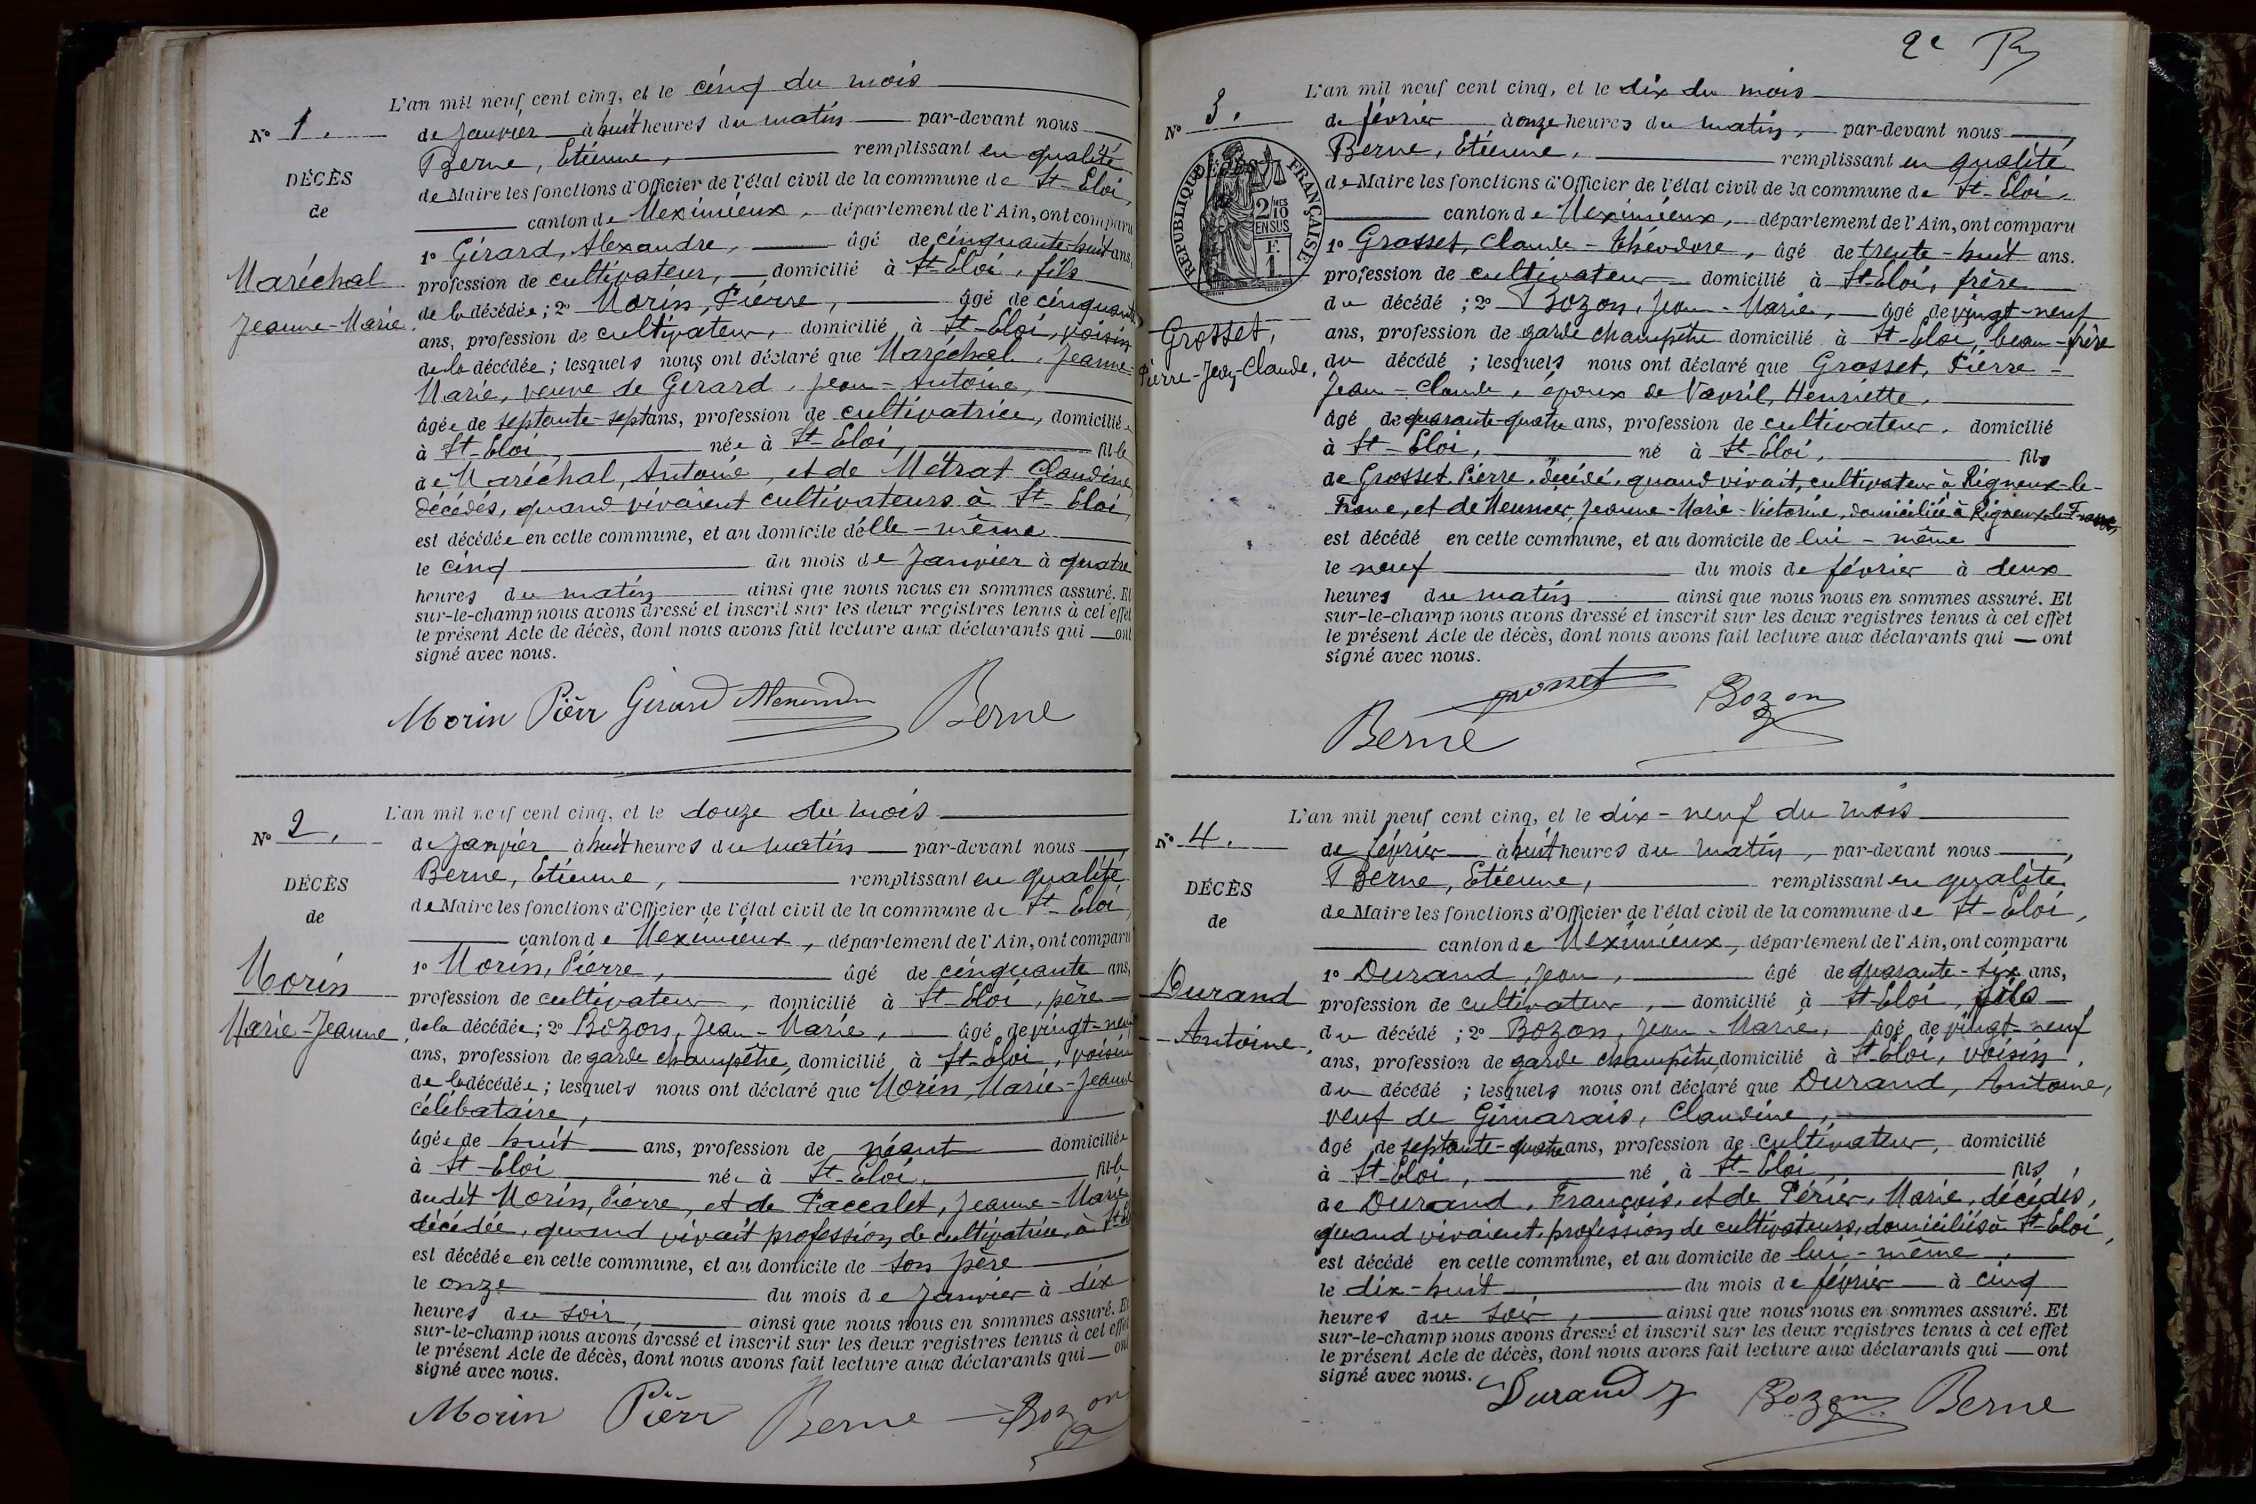 L'an mil neuf cent cinq, et le cinq du mois
N° 1.
de Janvier à huit heures du matin par-devant nous
Berne, Etienne, remplissant en qualité
DÉCÈS
de Maire les fonctions d'Officier de l'état civil de la commune de St-Eloi,
de
canton de Meximieux, département de l'Ain, ont comparu
1° Gérard, Alexandre, âgé de cinquante-huit ans,
Maréchal
profession de cultivateur, domicilié à St-Eloi, fils
Jeanne-Marie.
de la décédée; 2° Morin, Pierre, âgé de cinquante
ans, profession de cultivateur, domicilié à St-Eloi, voisin
de la décédée; lesquels nous ont déclaré que Maréchal, Jeanne-
Marie, veuve de Gérard, Jean-Antoine,
âgée de septante-sept ans, profession de cultivatrice, domiciliée
à St-Eloi, née à St-Eloi, fille
de Maréchal, Antoine, et de Métrat Claudine,
décédés, quand vivaient cultivateurs à St-Eloi,
est décédée en cette commune, et au domicile d'elle-même
le cinq du mois de Janvier à quatre
heures du matin ainsi que nous nous en sommes assuré. Et
sur-le-champ nous avons dressé et inscrit sur les deux registres tenus à cet effet
le présent Acte de décès, dont nous avons fait lecture aux déclarants qui ont
signé avec nous.
Morin Pièrr Gérard Alexandre Berne
L'an mil neuf cent cinq, et le douze du mois
N° 2.
de Janvier à huit heures du matin par-devant nous
Berne, Etienne, remplissant en qualité
DÉCÈS
de Maire les fonctions d'Officier de l'état civil de la commune de St-Eloi
de
canton de Meximieux, département de l'Ain, ont comparu
1° Morin, Pierre, âgé de cinquante ans,
Morin
profession de cultivateur, domicilié à St-Eloi, père
Marie-Jeanne.
de la décédée; 2° Bozon, Jean-Marie, âgé de vingt-neuf
ans, profession de garde champêtre, domicilié à St-Eloi, voisin
de la décédée; lesquels nous ont déclaré que Morin, Marie-Jeanne
célibataire,
âgée de huit ans, profession de néant domiciliée
à St-Eloi née à St-Eloi, fille
dudit Morin, Pierre, et de Paccalet, Jeanne-Marie
décédée, quand vivait profession de cultivatrice, à St-El
est décédée en cette commune, et au domicile de son père
le onze du mois de Janvier à dix
heures du soir, ainsi que nous nous en sommes assuré. Et
sur-le-champ nous avons dressé et inscrit sur les deux registres tenus à cet effet
le présent Acte de décès, dont nous avons fait lecture aux déclarants qui ont
signé avec nous.
Morin Pièrr Berne Bozon
2e
L'an mil neuf cent cinq, et le dix du mois
N° 3.
de février à onze heures du matin, par-devant nous
Berne, Etienne, remplissant en qualité
DÉCÈS
RÉPUBLIQUE FRANÇAISE
2/10 MES
EN SUS
F.
1
de Maire les fonctions d'Officier de l'état civil de la commune de St-Eloi,
canton de Meximieux, département de l'Ain, ont comparu
1° Grosset, Claude-Théodore, âgé de trente-huit ans.
profession de cultivateur domicilié à St-Eloi, frère
du décédé; 2° Bozon, Jean-Marie, âgé de vingt-neuf
Grosset,
ans, profession de garde champêtre domicilié à St-Eloi, beau-frère
Pierre-Jean-Claude,
du décédé; lesquels nous ont déclaré que Grosset, Pierre-
Jean-Claude, époux de Vavril, Henriette,
âgé de quarante-quatre ans, profession de cultivateur, domicilié
à St-Eloi, né à St-Eloi, fils
de Grosset Pierre, décédé, quand vivait, cultivateur à Rigneux-le-
Franc, et de Meunier, Jeanne-Marie-Victorine, domiciliée à Rigneux-le-Franc,
est décédé en cette commune, et au domicile de lui-même
le neuf du mois de février à deux
heures du matin ainsi que nous nous en sommes assuré. Et
sur-le-champ nous avons dressé et inscrit sur les deux registres tenus à cet effet
le présent Acte de décès, dont nous avons fait lecture aux déclarants qui ont
signé avec nous.
Berne grosset Bozon
L'an mil neuf cent cinq, et le dix-neuf du mois
N° 4.
de février à huit heures du matin, par-devant nous
Berne, Etienne, remplissant en qualité
DÉCÈS
de Maire les fonctions d'Officier de l'état civil de la commune de St-Eloi,
de
canton de Meximieux, département de l'Ain, ont comparu
1° Durand, Jean, âgé de quarante-six ans,
Durand
profession de cultivateur, domicilié à St-Eloi, fils
Antoine.
du décédé; 2° Bozon, Jean-Marie, âgé de vingt-neuf
ans, profession de garde champêtre, domicilié à St-Eloi, voisin,
du décédé; lesquels nous ont déclaré que Durand, Antoine,
veuf de Gimarais, Claudine,
âgé de septante-quatre ans, profession de cultivateur, domicilié
à St-Eloi, né à St-Eloi, fils,
de Durand, François, et de Périer, Marie, décédés,
quand vivaient, profession de cultivateurs, domiciliés à St-Eloi,
est décédé en cette commune, et au domicile de lui-même,
le dix-huit du mois de février à cinq
heures du soir, ainsi que nous nous en sommes assuré. Et
sur-le-champ nous avons dressé et inscrit sur les deux registres tenus à cet effet
le présent Acte de décès, dont nous avons fait lecture aux déclarants qui ont
signé avec nous.
Durand J Bozon Berne